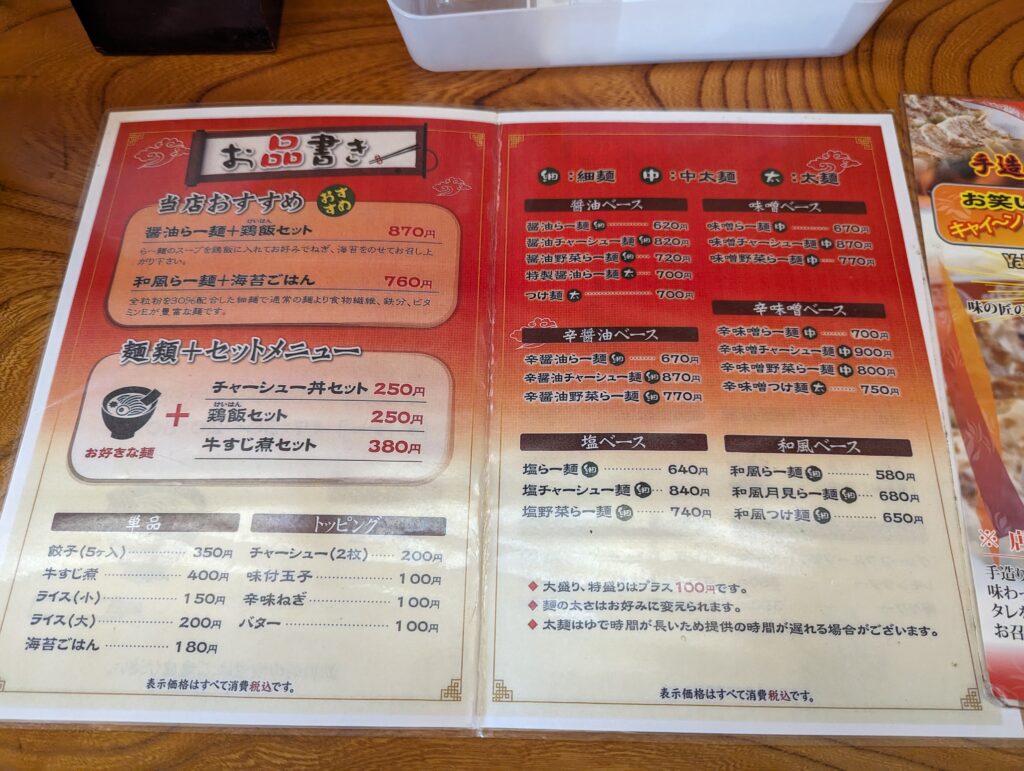 お品書き
当店おすすめ
おすすめ
けいはん
醤油らー麺＋鶏飯セット 870円
らー麺のスープを鶏飯に入れてお好みでねぎ、海苔をのせてお召し上
がり下さい。
和風らー麺＋海苔ごはん 760円
全粒粉を30%配合した細麺で通常の麺より食物繊維、鉄分、ビタ
ミンEが豊富な麺です。
麺類＋セットメニュー
お好きな麺
+
チャーシュー丼セット 250円
けいはん
鶏飯セット 250円
牛すじ煮セット 380円
単品
餃子(5ヶ入) 350円
牛すじ煮 400円
ライス(小) 150円
ライス(大) 200円
海苔ごはん 180円
トッピング
チャーシュー(2枚) 200円
味付玉子 100円
辛味ねぎ 100円
バター 100円
表示価格はすべて消費税込です。
細:細麺 中:中太麺 太:太麺
醤油ベース
醤油らー麺 細 620円
醤油チャーシュー麺 細 820円
醤油野菜らー麺 細 720円
特製醤油らー麺 太 700円
つけ麺 太 700円
辛醤油ベース
辛醤油らー麺 細 670円
辛醤油チャーシュー麺 細 870円
辛醤油野菜らー麺 細 770円
塩ベース
塩らー麺 細 640円
塩チャーシュー麺 細 840円
塩野菜らー麺 細 740円
味噌ベース
味噌らー麺 中 670円
味噌チャーシュー麺 中 870円
味噌野菜らー麺 中 770円
辛味噌ベース
辛味噌らー麺 中 700円
辛味噌チャーシュー麺 中 900円
辛味噌野菜らー麺 中 800円
辛味噌つけ麺 太 750円
和風ベース
和風らー麺 細 580円
和風月見らー麺 細 680円
和風つけ麺 細 650円
◆大盛り、特盛りはプラス100円です。
◆麺の太さはお好みに変えられます。
◆太麺はゆで時間が長いため提供の時間が遅れる場合がございます。
表示価格はすべて消費税込です。
手造
お笑い
キャイ〜ン
味の匠の
※
手造り
味わっ
タレを
お召